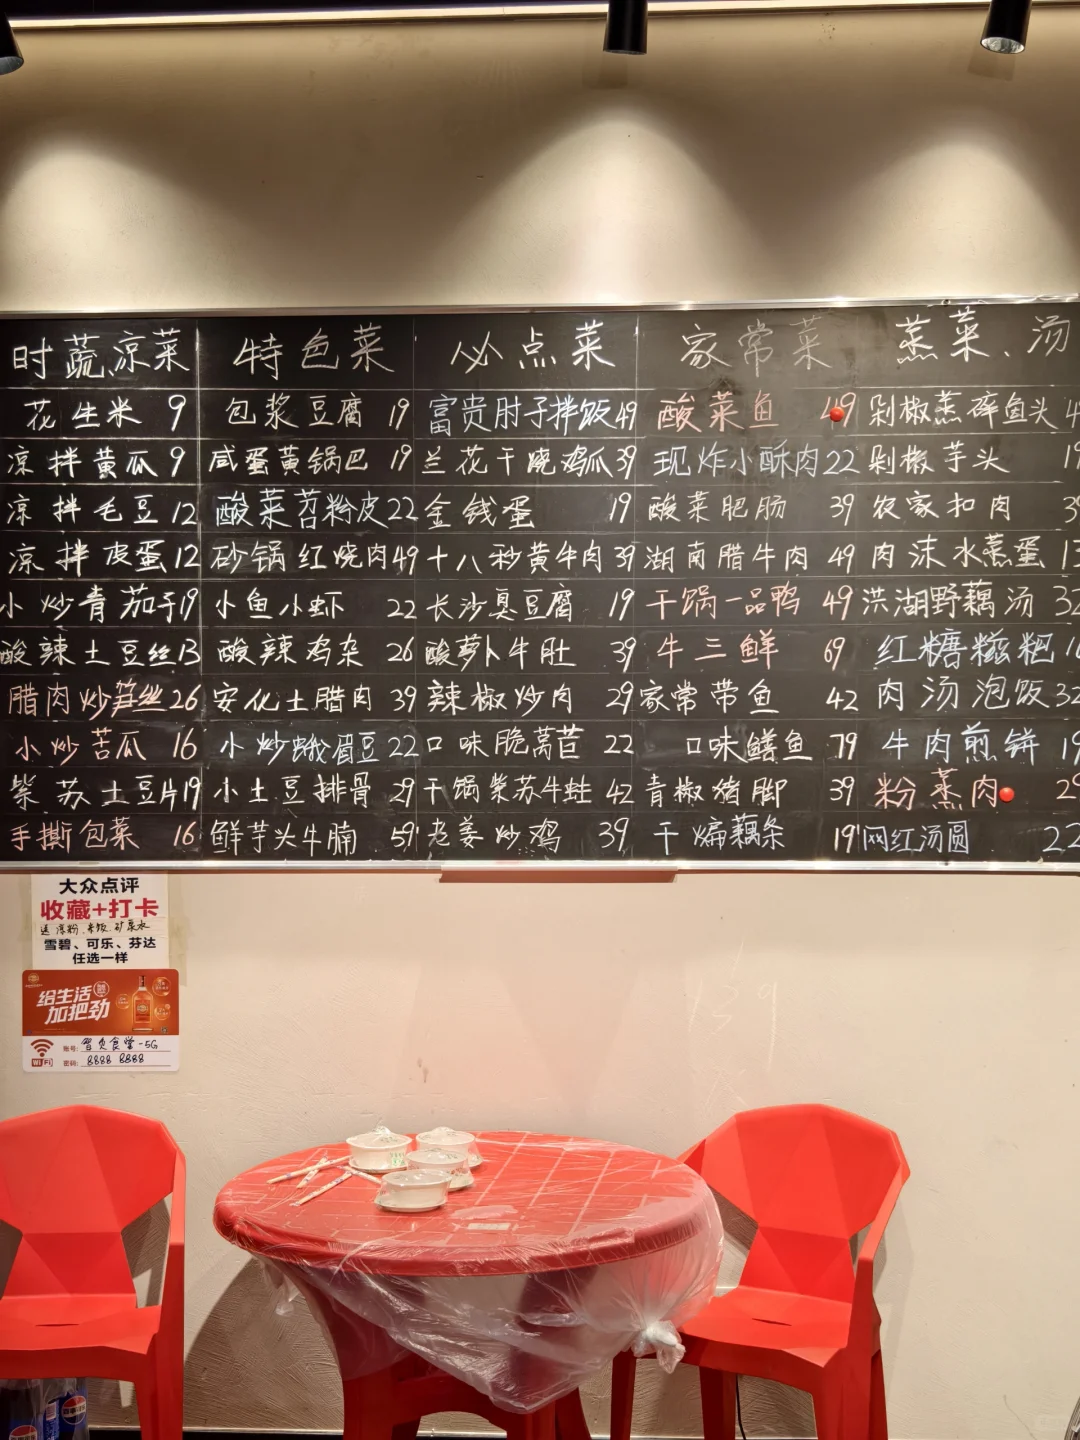 时蔬凉菜 特色菜 必点菜 家常菜 蒸菜、汤
花生米 9 包浆豆腐 19 富贵肘子拌饭 49 酸菜鱼 49 剁椒蒸碎鱼头 4
凉拌黄瓜 9 咸蛋黄锅巴 19 兰花干烧鸡爪 39 现炸小酥肉 22 剁椒芋头 19
凉拌毛豆 12 酸菜苕粉皮 22 金钱蛋 19 酸菜肥肠 39 农家扣肉 39
凉拌皮蛋 12 砂锅红烧肉 49 十八秒黄牛肉 39 湖南腊牛肉 49 肉沫水蒸蛋 13
小炒青茄子 19 小鱼小虾 22 长沙臭豆腐 19 干锅一品鸭 49 洪湖野藕汤 32
酸辣土豆丝 13 酸辣鸡杂 26 酸萝卜牛肚 39 牛三鲜 69 红糖糍粑 16
腊肉炒笋丝 26 安化土腊肉 39 辣椒炒肉 29 家常带鱼 42 肉汤泡饭 32
小炒苦瓜 16 小炒蛾眉豆 22 口味脆莴苣 22 口味鳝鱼 79 牛肉煎饼 19
紫苏土豆片 19 小土豆排骨 29 干锅紫苏牛蛙 42 青椒猪脚 39 粉蒸肉 29
手撕包菜 16 鲜芋头牛腩 59 老姜炒鸡 39 干煸藕条 19 网红汤圆 22
大众点评
收藏+打卡
送凉粉、米饭、矿泉水
雪碧、可乐、芬达
任选一样
给生活
加把劲
WiFi
账号: 食堂-5G
密码: 8888 8888
139